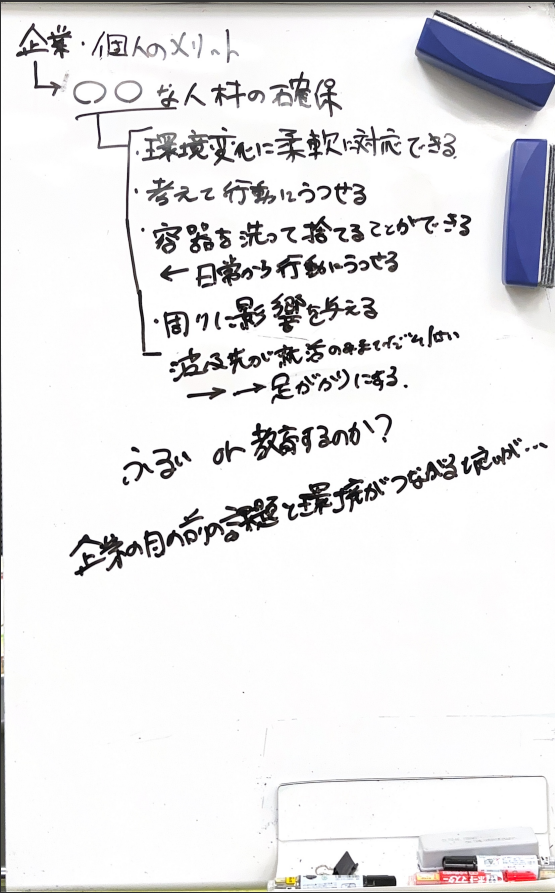 企業・個人のメリット
→ ○○な人材の確保
・環境変化に柔軟に対応できる
・考えて行動にうつせる
・容器を洗って捨てることができる
← 日常から行動にうつせる
・周りに影響を与える
波及先が就活のみまでだと
→ → 足ががりにする.
ふるい or 教育するのか?
企業の目の前の課題と環境がつながると良いが…